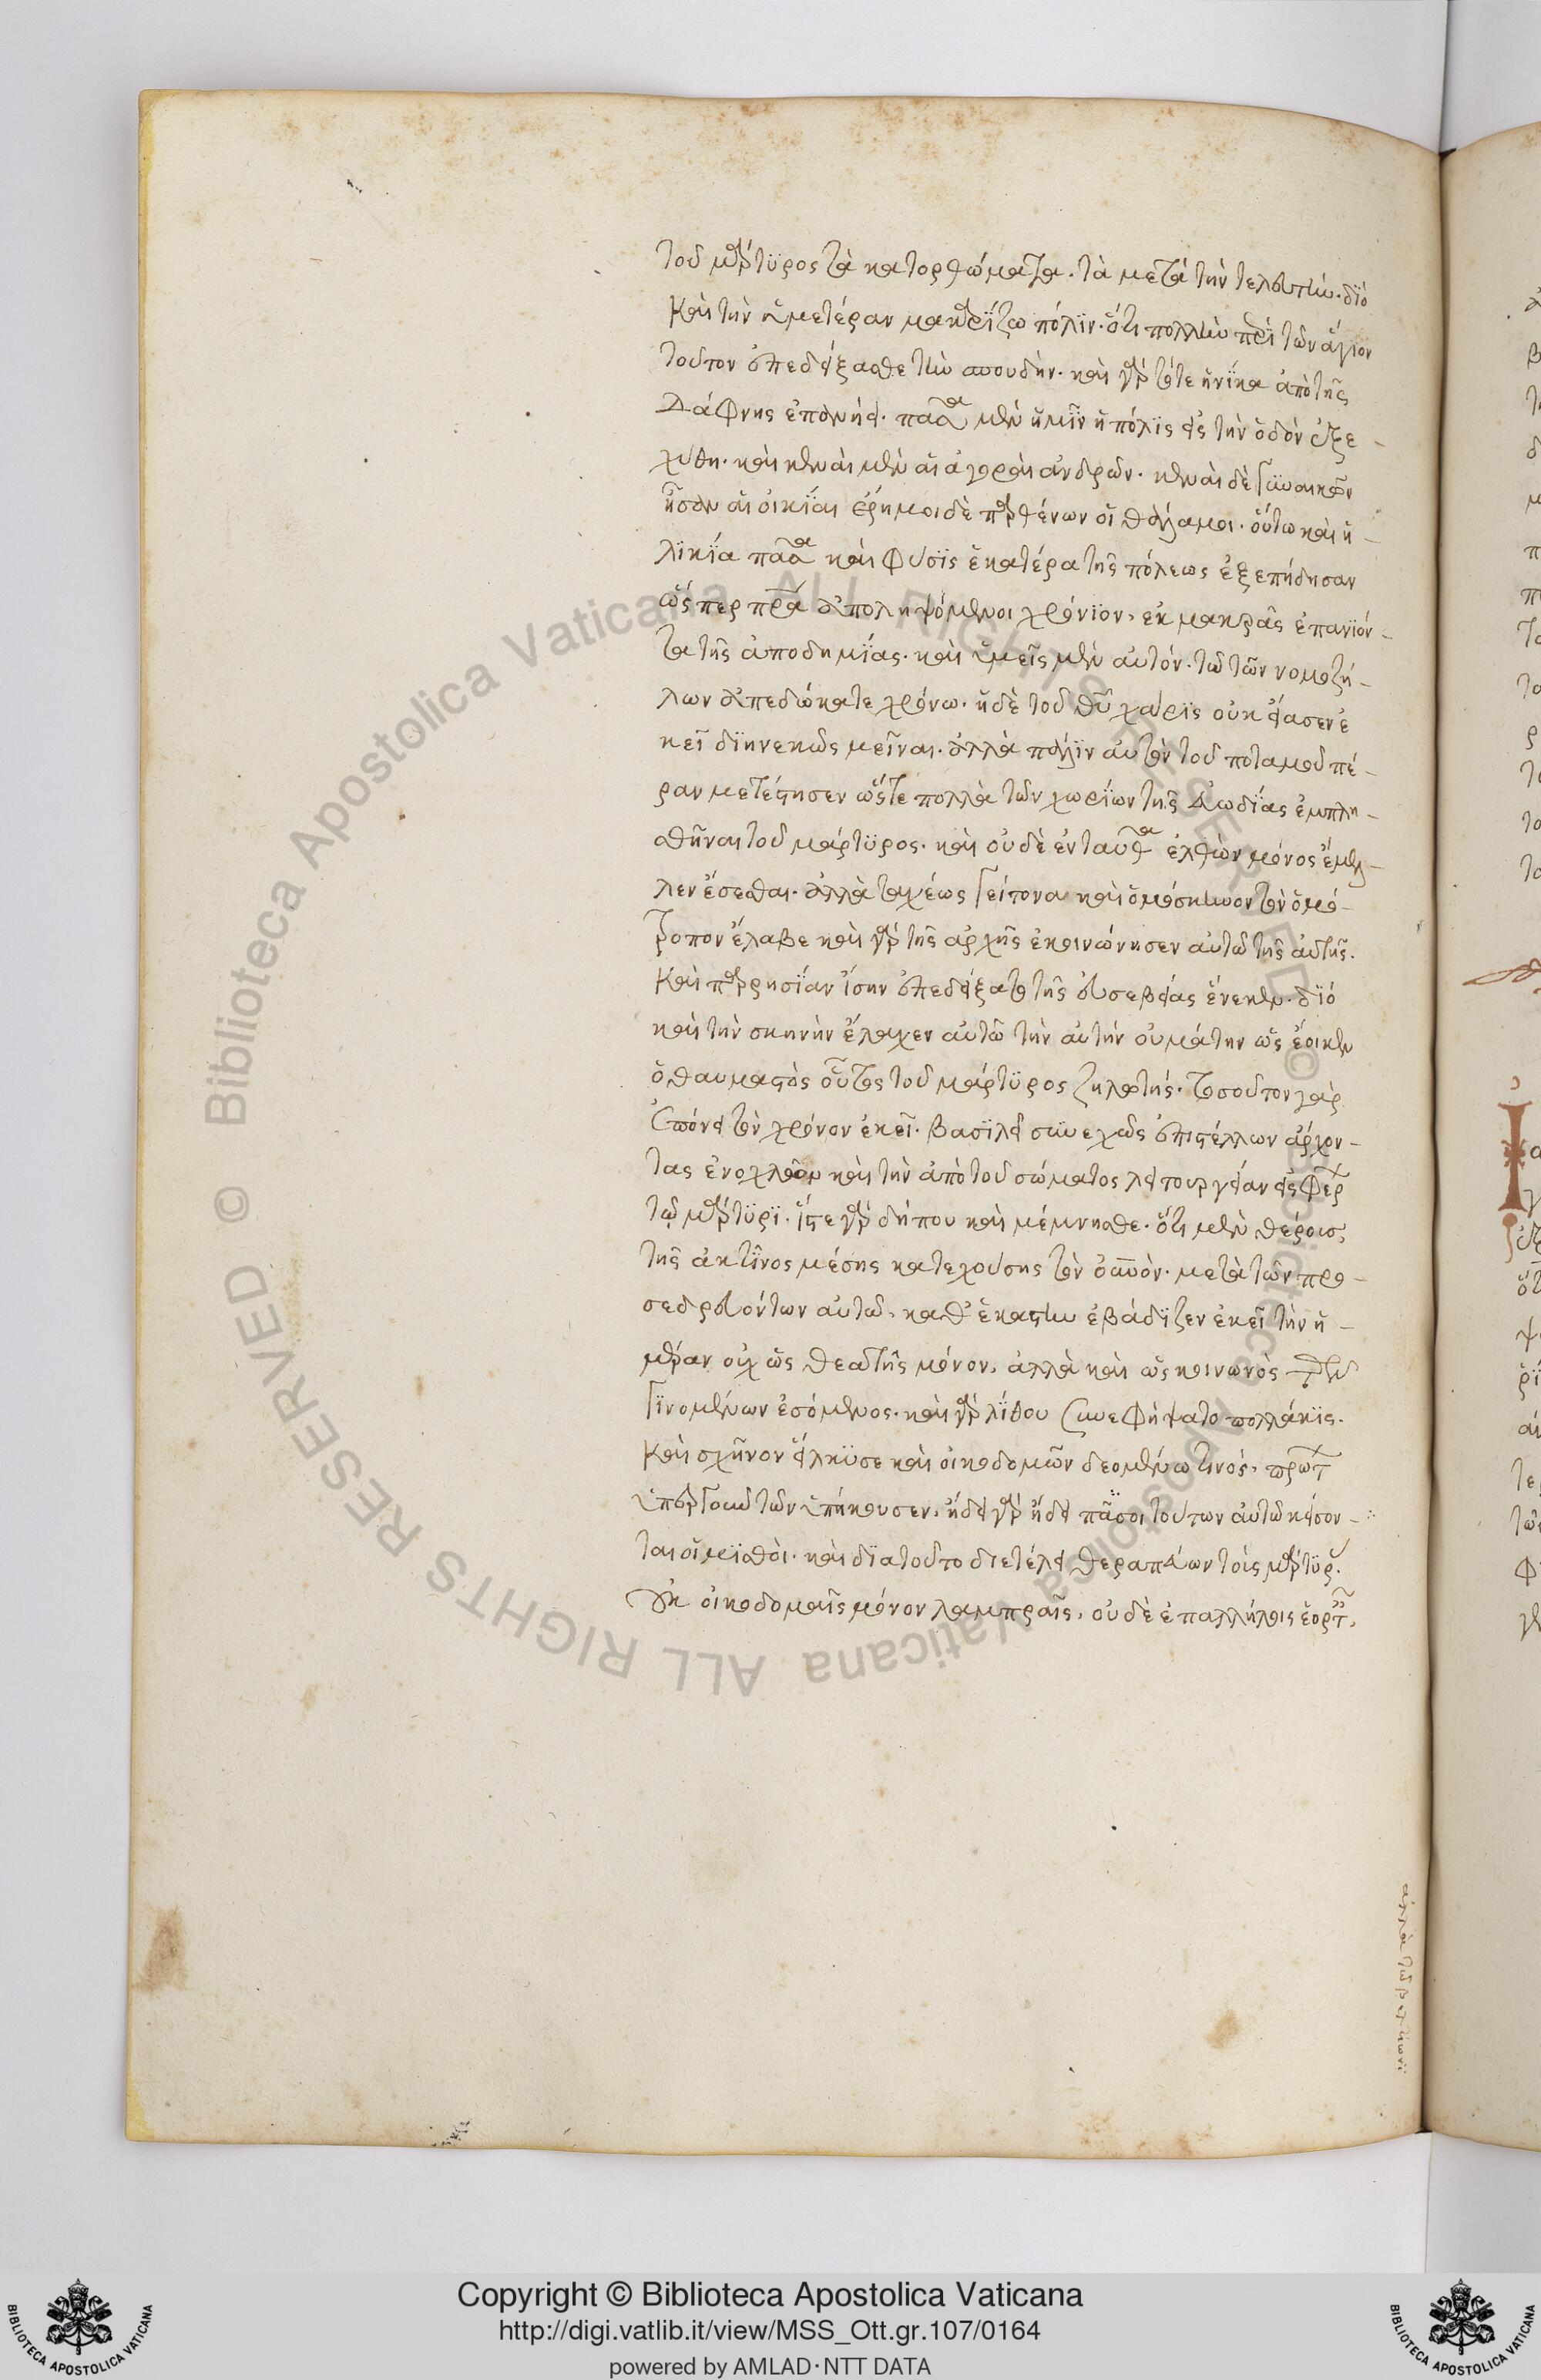 τοῦ μάρτϋρος τὰ κατορθώματα. τὰ μετὰ τὴν τελευτήν. δϊὸ
καὶ τὴν ὑμετέραν μακαρΐζω πόλϊν. ὅτι πολλὴν περὶ τὸν ἅγιον
τοῦτον ἐπεδείξασθε τὴν σπουδήν. καὶ γὰρ τότε ἡνΐκα ἀπὸ τῆς
Δάφνης ἐπανήει. πᾶσα μὲν ἡμῖν ἡ πόλϊς εἰς τὴν ὁδὸν ἐξε-
χύθη. καὶ κεναὶ μὲν αἱ ἀγοραὶ ἀνδρῶν. κεναὶ δὲ γϋναικῶν
ἦσαν αἱ οἰκΐαι ἔρημοι δὲ παρθένων οἱ θάλαμοι. οὕτω καὶ ἡ-
λϊκΐα πᾶσα καὶ φύσϊς ἑκατέρα τῆς πόλεως ἐξεπήδησαν
ὥσπερ πατέρα ἀποληψόμενοι χρόνϊον, ἐκ μακρᾶς ἐπανϊόν-
τα τῆς ἀποδημΐας. καὶ ὑμεῖς μὲν αὐτόν. τῶ τῶν ὁμοζή-
λων ἀπεδώκατε χρόνω. ἡ δὲ τοῦ θῦ χάρϊς οὐκ εἴασεν ἐ
κεῖ δϊηνεκῶς μεῖναι. ἀλλὰ πάλϊν αὐτὸν τοῦ ποταμοῦ πέ-
ραν μετέστησεν ὥστε πολλὰ τῶν χωρΐων τῆς εὐωδΐας ἐμπλη-
σθῆναι τοῦ μάρτϋρος. καὶ οὐδὲ ἐνταῦθα ἐλθὼν μόνος ἔμελ-
λεν ἔσεσθαι. ἀλλὰ ταχέως γείτονα καὶ ὁμόσκηνον τὸν ὁμό-
τροπον ἔλαβε καὶ γὰρ τῆς ἀρχῆς ἐκοινώνησεν αὐτῶ τῆς αὐτῆς.
καὶ παρρησΐαν ἴσην ἐπεδείξατο τῆς εὐσεβείας ἕνεκεν. δϊὸ
καὶ τὴν σκηνὴν ἔλαχεν αὐτῶ τὴν αὐτὴν οὐ μάτην ὡς ἔοικεν
ὁ θαυμαστὸς οὗτος τοῦ μάρτϋρος ζηλωτής. τοσοῦτον γὰρ
ἐπόνει τὸν χρόνον ἐκεῖ. βασϊλεῖ συνεχῶς ἐπιστέλλων ἄρχον-
τας ἐνοχλῶν καὶ τὴν ἀπὸ τοῦ σώματος λειτουργείαν εἰσφέρ
τῷ μάρτϋρϊ. ἴστε γὰρ δήπου καὶ μέμνησθε. ὅτι μὲν θέρους
τῆς ἀκτῖνος μέσης κατεχούσης τὸν οὐνὸν. μετὰ τῶν προ-
σεδρευόντων αὐτῶ, καθ ἑκάστην ἐβάδϊζεν ἐκεῖ τὴν ἡ-
μέραν οὐχ ὡς θεατὴς μόνον, ἀλλὰ καὶ ὡς κοινωνὸς τῶν
γϊνομένων ἐσόμενος. καὶ γὰρ λΐθου συνεφήψατο πολλάκϊς.
καὶ σχῆνον εἵλκϋσε καὶ οἰκοδομῶν δεομένω τινός, πρῶτ
ὑπὲρ τῶν ὑπήκουσεν, ἤδει γὰρ ἤδει πόσοι τούτων αὐτῶ κείσον-
ται οἱ μϊσθοὶ. καὶ δϊατοῦτο διετέλει θεραπεύων τοὺς μάρτϋρ.
οὐκ οἰκοδομαῖς μόνον λαμπραῖς, οὐδὲ ἐπαλλήλοις ἑορτ,
© Biblioteca Apostolica Vaticana ALL RIGHTS RESERVED © Biblioteca Apostolica Vaticana ALL RIGHTS RESERVED
Copyright © Biblioteca Apostolica Vaticana
http://digi.vatlib.it/view/MSS_Ott.gr.107/0164
powered by AMLAD·NTT DATA
BIBLIOTECA APOSTOLICA VATICANA
BIBLIOTECA APOSTOLICA VATICANA